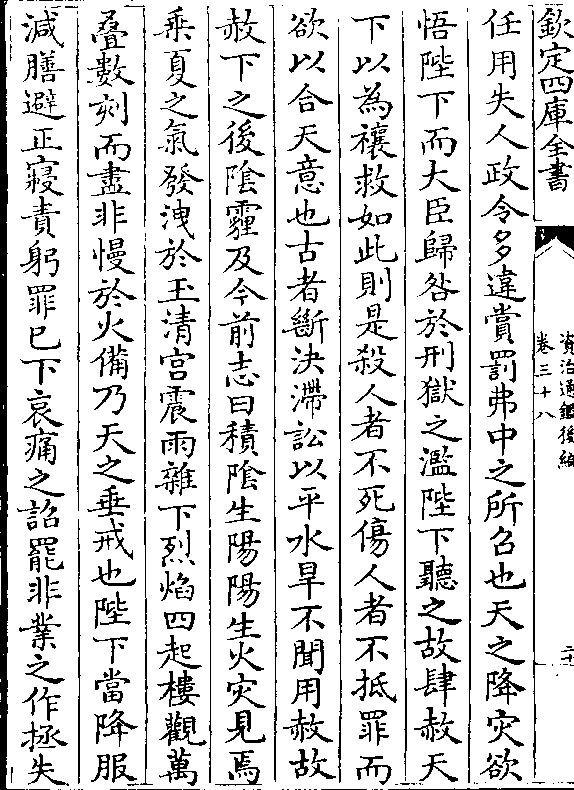 欽定四庫全書
資治通鑑後編
卷三十八
二十
任用失人政令多違賞罰弗中之所召也天之降灾欲
悟陛下而大臣歸咎於刑獄之濫陛下聽之故肆赦天
下以為禳救如此則是殺人者不死傷人者不抵罪而
欲以合天意也古者斷決滯訟以平水旱不聞用赦故
赦下之後陰霾及今前志曰積陰生陽陽生火灾見焉
乘夏之氣發洩於玉清宫震雨雜下烈焰四起樓觀萬
疊數刻而盡非慢於火備乃天之垂戒也陛下當降服
減膳避正寢責躬罪已下哀痛之詔罷非業之作拯失